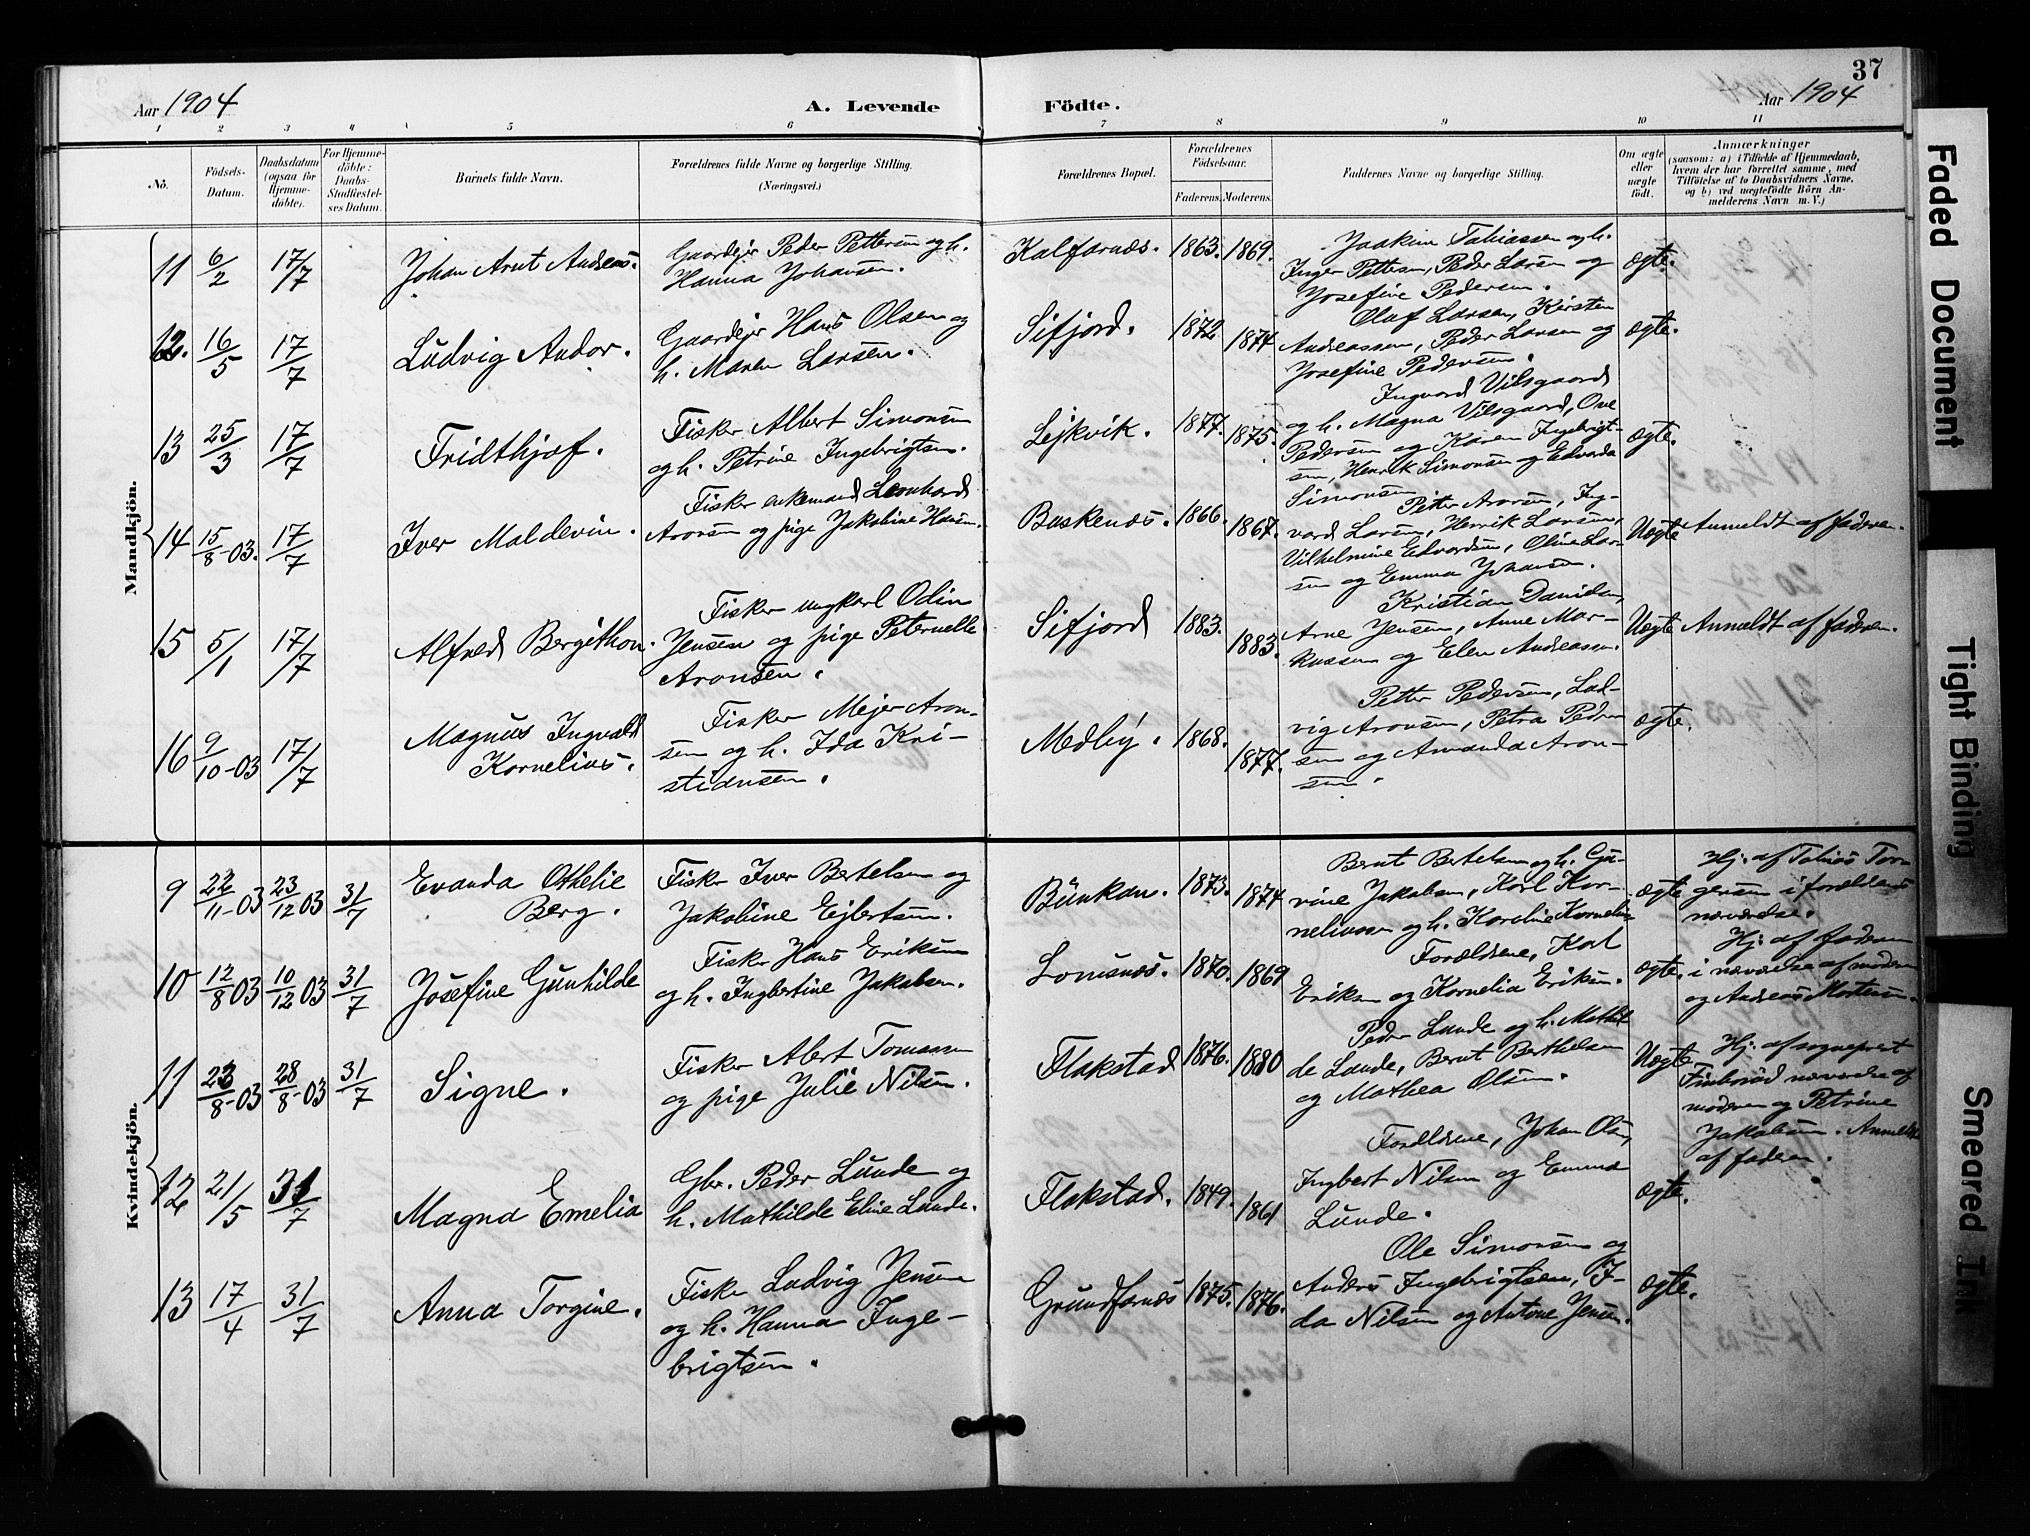 37
Aar 1904 A. Levende Födte. Aar 1904
1 2 3 4 5 6 7 8 9 10 11
No. Födsels-Datum. Daabsdatum (ogsaa for Hjemmedöbte). For Hjemmedöbte: Daabs-Stadfæstelses Datum. Barnets fulde Navn. Forældrenes fulde Navne og borgerlige Stilling. (Næringsvei.) Forældrenes Bopæl. Forældrenes Födselsaar. Faderens. Moderens. Faddernes Navne og borgerlige Stilling. Om ægte eller uægte födt. Anmærkninger (saasom: a) i Tilfælde af Hjemmedaab, hvem der har forrettet samme, med Tilföielse af to Daabsvidners Navne. og b) ved uægtefödte Börn Anmelderens Navn m. V.)
Mandkjön.
11 6/2 17/7 Johan Arnt Andreas. Gaardejr Peder Pettersen og h.
Hanna Johansen. Kalfarnæs. 1863. 1869. Joakim Tobiassen og h.
Inger Pettersen, Peder Larsen og
Josefine Pedersen. ægte.
12. 16/5 17/7 Ludvig Andor. Gaardejr Hans Olsen og
h. Maren Larsen. Sifjord. 1872 1874 Oluf Larsen, Kirsten
Andreassen, Peder Larsen og
Josefine Pedersen. ægte.
13 25/3 17/7 Fridthjof. Fisker Albert Simonsen
og h. Petrine Ingebrigtsen. Lejkvik. 1877. 1875. Ingvard Vilsgaard
og h. Magna Vilsgaard, Ove
Pedersen og Karen Ingebrigt-
sen, Henrik Simonsen og Edvarda
Simonsen. ægte.
14 15/8-03. 17/7 Iver Maldevin. Fisker enkemand Leonhard
Aronsen og pige Jakobine Hansen. Baskenes. 1866. 1867. Peter Aronsen, Ing-
vard Larsen, Henrik Larsen,
Vilhelmine Edvardsen, Oline Lar-
sen og Emma Johansen. Uægte Anmeldt af faderen.
15 5/1 17/7 Alfred Bergithon. Fisker ungkarl Odin
Jensen og pige Peternelle
Aronsen. Sifjord 1883. 1883. Kristian Danielsen,
Arne Jensen, Anne Mar-
kussen og Elen Andreassen. Uægte Anmeldt af faderen.
16 9/10-03 17/7 Magnus Ingvald
Kornelius. Fisker Mejer Aron-
sen og h. Ida Kri-
stiansen. Medby. 1868. 1877. Petter Pedersen, Lud-
vig Aronsen, Petra Peder
sen og Amanda Aron-
sen. ægte.
Kvindekjön.
9 22/11-03 23/12 03 31/7 Evanda Othelie
Berg. Fisker Iver Bertelsen og
Jakobine Ejlertsen. Bunkan. 1873. 1874 Bernt Bertelsen og h. Gu-
rine Jakobsen, Karl Kor-
neliussen og h. Karoline Kornelius ægte Hj. af Tobias Tor-
gersen i forældrenes
nærværelse.
10 12/8 03 10/12 03 31/7 Josefine Gunhilde Fisker Hans Eriksen
og h. Ingbertine Jakobsen. Lomsnæs. 1870. 1869 Forældrene, Karl
Eriksen og Kornelia Eriksen. ægte. Hj. af faderen
i nærværelse af moderen
og Andreas Mortensen.
11 23/8-03 28/8-03 31/7 Signe. Fisker Abert Tomassen
og pige Julie Nilsen. Flakstad 1876. 1880 Peder Lunde og h. Mathil
de Lunde, Bernt Berthelsen
og Mathea Olsen. Uægte Hj. af sognepræst
nærværelse af
moderen og Petrine
Jakobsen. Anmeldt
af faderen.
12 21/5 31/7 Magna Emelia Gbr. Peder Lunde og
h. Mathilde Eline Lunde. Flakstad. 1849. 1861 Forældrene, Johan Olsen,
Ingbert Nilsen og Emma
Lunde. ægte.
13 17/4 31/7 Anna Torgine. Fisker Ludvig Jensen
og h. Hanna Inge-
brigtsen. Grundfarnæs 1875. 1876. Ole Simonsen og
Anders Ingebrigtsen, I-
da Nilsen og Antone Jensen. ægte.
Faded Document
Tight Binding
Smeared Ink